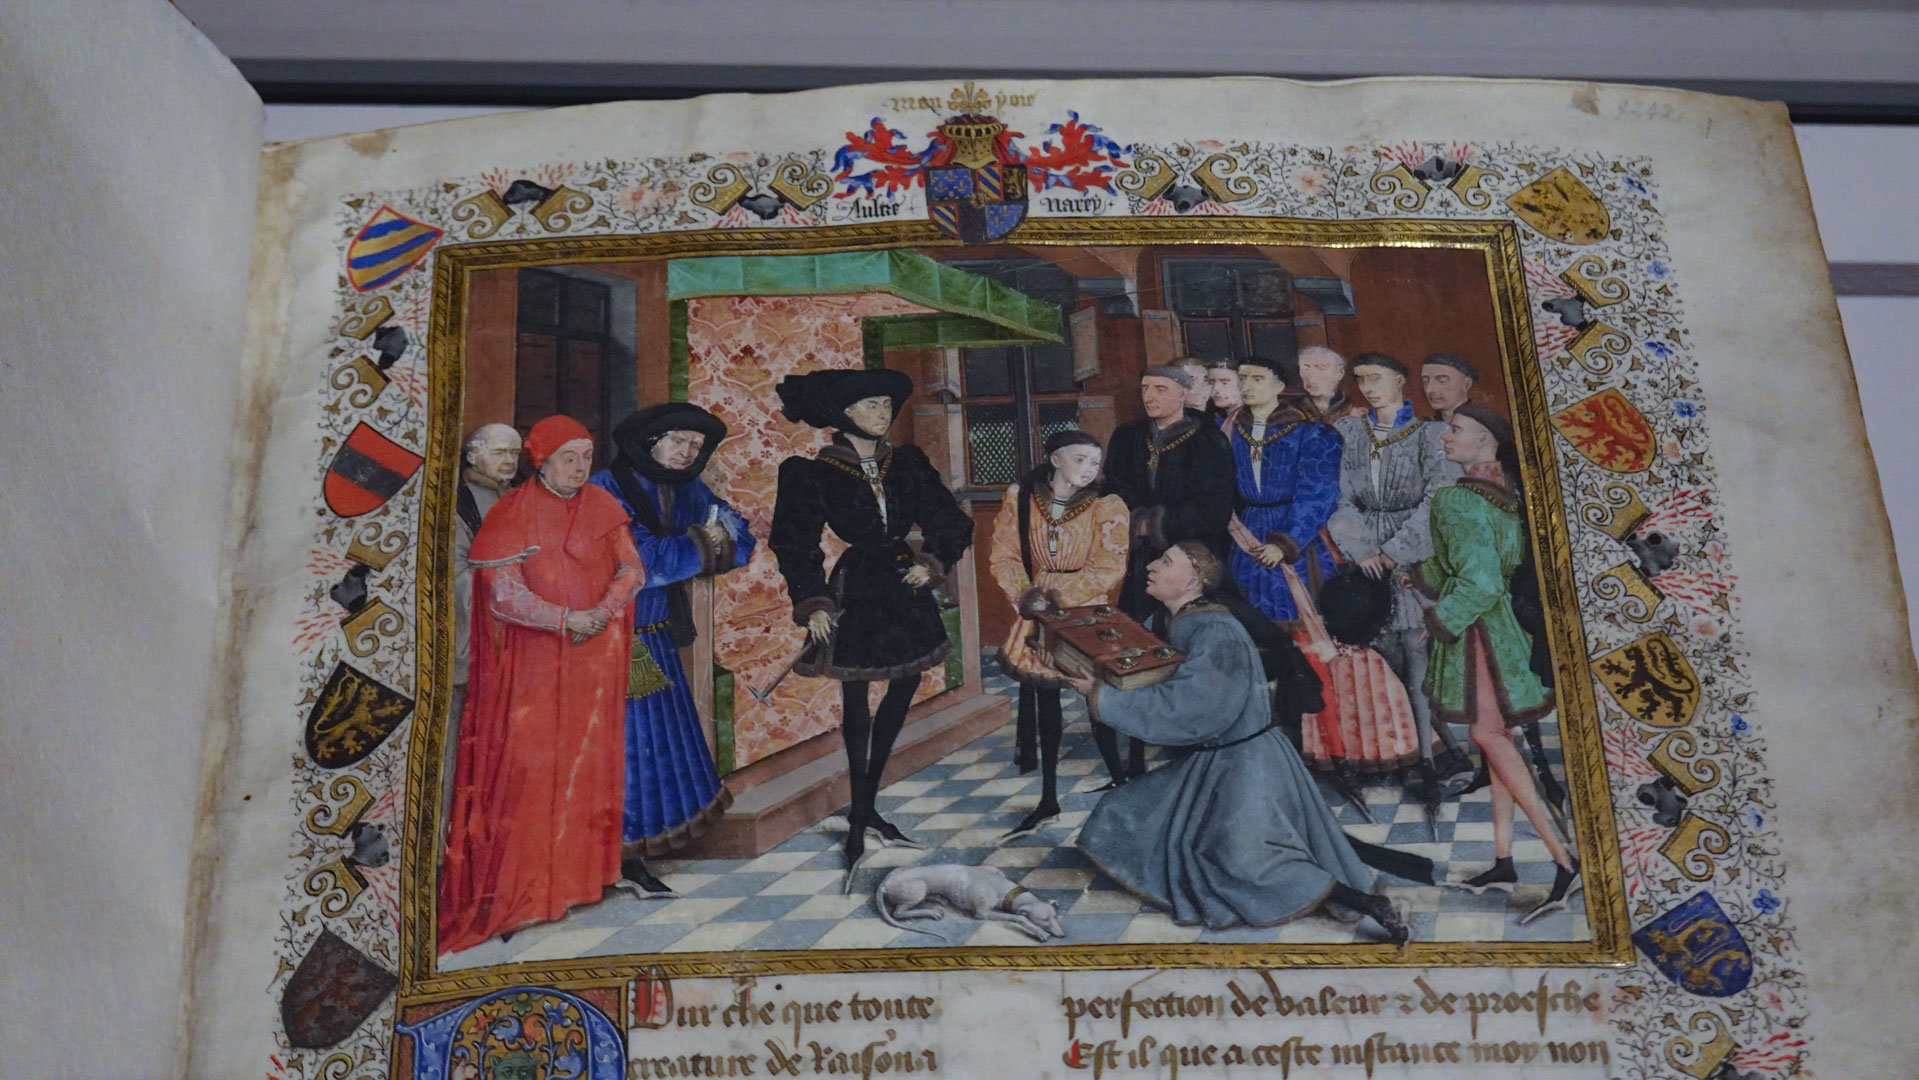 Mon yoie
9242
Aultre Narey
Pour che que toute
creature de Raisona
perfection de valeur & de proesche
Est il que a ceste instance moy non